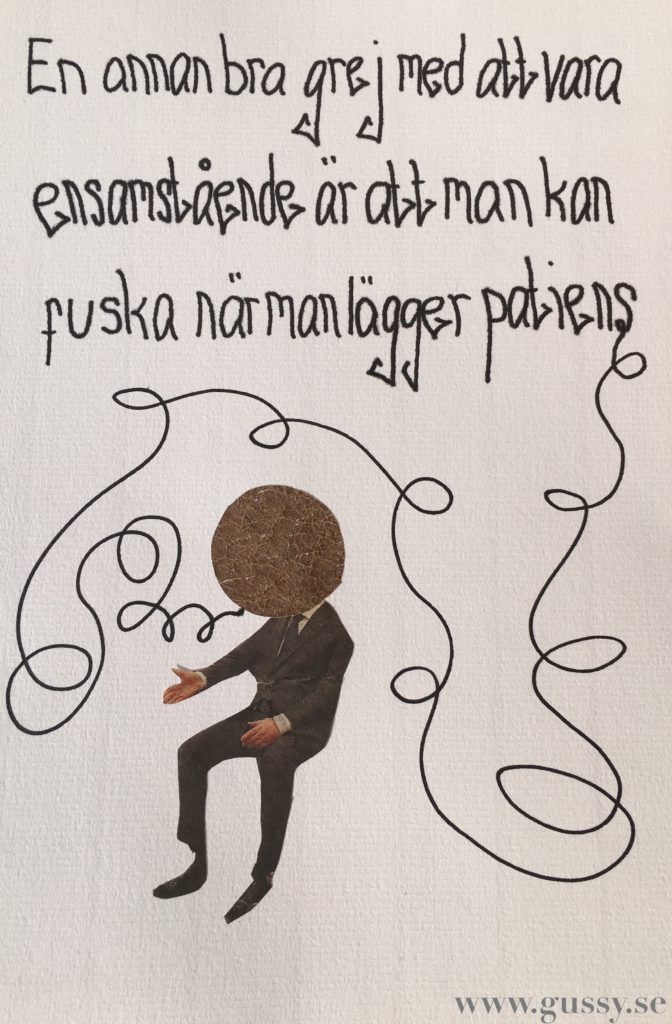 En annan bra grej med att vara
ensamstående är att man kan
fuska när man lägger patiens
www.gussy.se